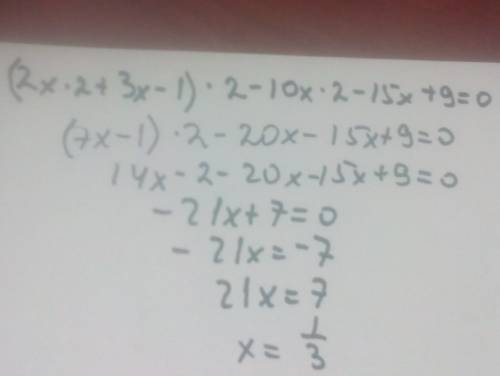 (2x·2+3x-1)·2-10x·2-15x+9=0
(7x-1)·2-20x-15x+9=0
14x-2-20x-15x+9=0
-21x+7=0
-21x=-7
21x=7
x=1/3